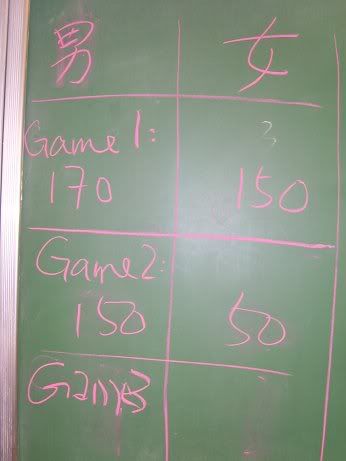 男 女
Game 1:
170 150
Game 2:
150 50
Game3